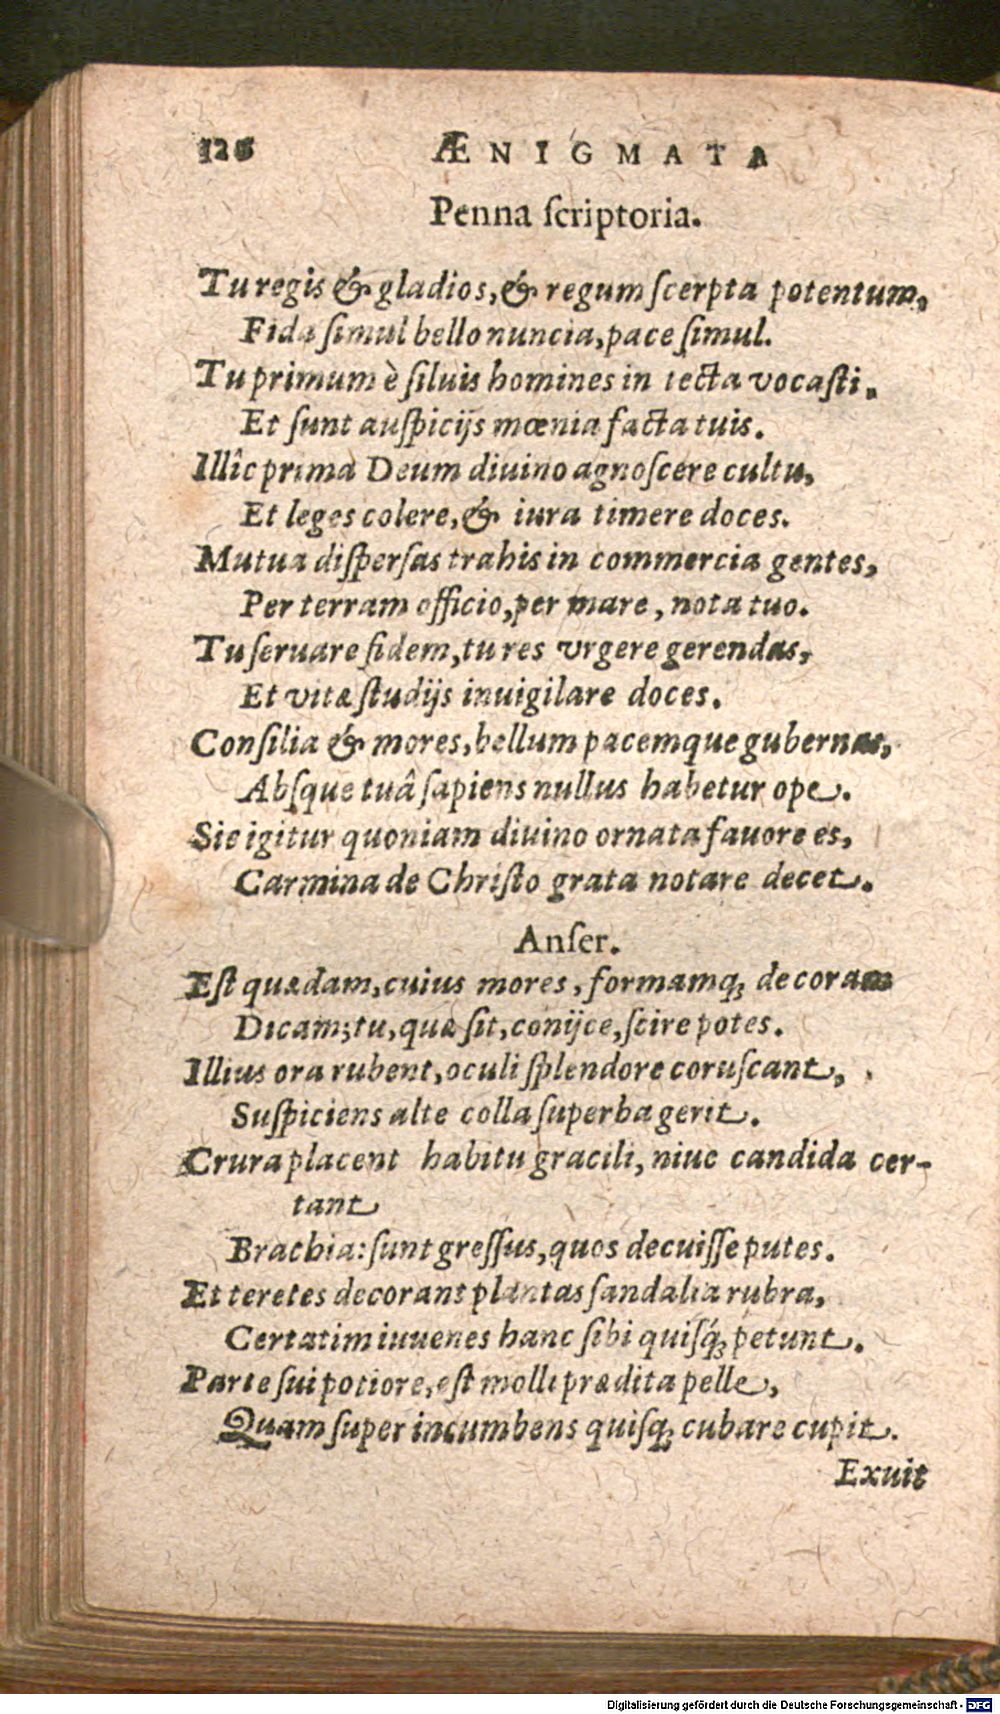 126 ÆNIGMATA
Penna ſcriptoria.
Tu regis & gladios, & regum ſcerpta potentum,
Fida ſimul bello nuncia, pace ſimul.
Tu primum è ſiluis homines in tecta vocaſti,
Et ſunt auſpicijs mœnia facta tuis.
Illîc prima Deum diuino agnoſcere cultu,
Et leges colere, & iura timere doces.
Mutua diſperſas trahis in commercia gentes,
Per terram officio, per mare, nota tuo.
Tu ſeruare fidem, tu res vrgere gerendas,
Et vitæ ſtudijs inuigilare doces.
Conſilia & mores, bellum pacemque gubernas,
Abſque tuâ ſapiens nullus habetur ope.
Sic igitur quoniam diuino ornata fauore es,
Carmina de Chriſto grata notare decet.
Anſer.
Eſt quædam, cuius mores, formamq; decoram
Dicam; tu, quæ ſit, conijce, ſcire potes.
Illius ora rubent, oculi ſplendore coruſcant,
Suſpiciens alte colla ſuperba gerit.
Crura placent habitu gracili, niue candida cer-
tant
Brachia: ſunt greſſus, quos decuiſſe putes.
Et teretes decorant plantas ſandalia rubra,
Certatim iuuenes hanc ſibi quiſq́; petunt.
Parte ſui potiore, eſt molli prædita pelle,
Quam ſuper incumbens quiſq; cubare cupit.
Exuit
Digitalisierung gefördert durch die Deutsche Forschungsgemeinschaft - DFG